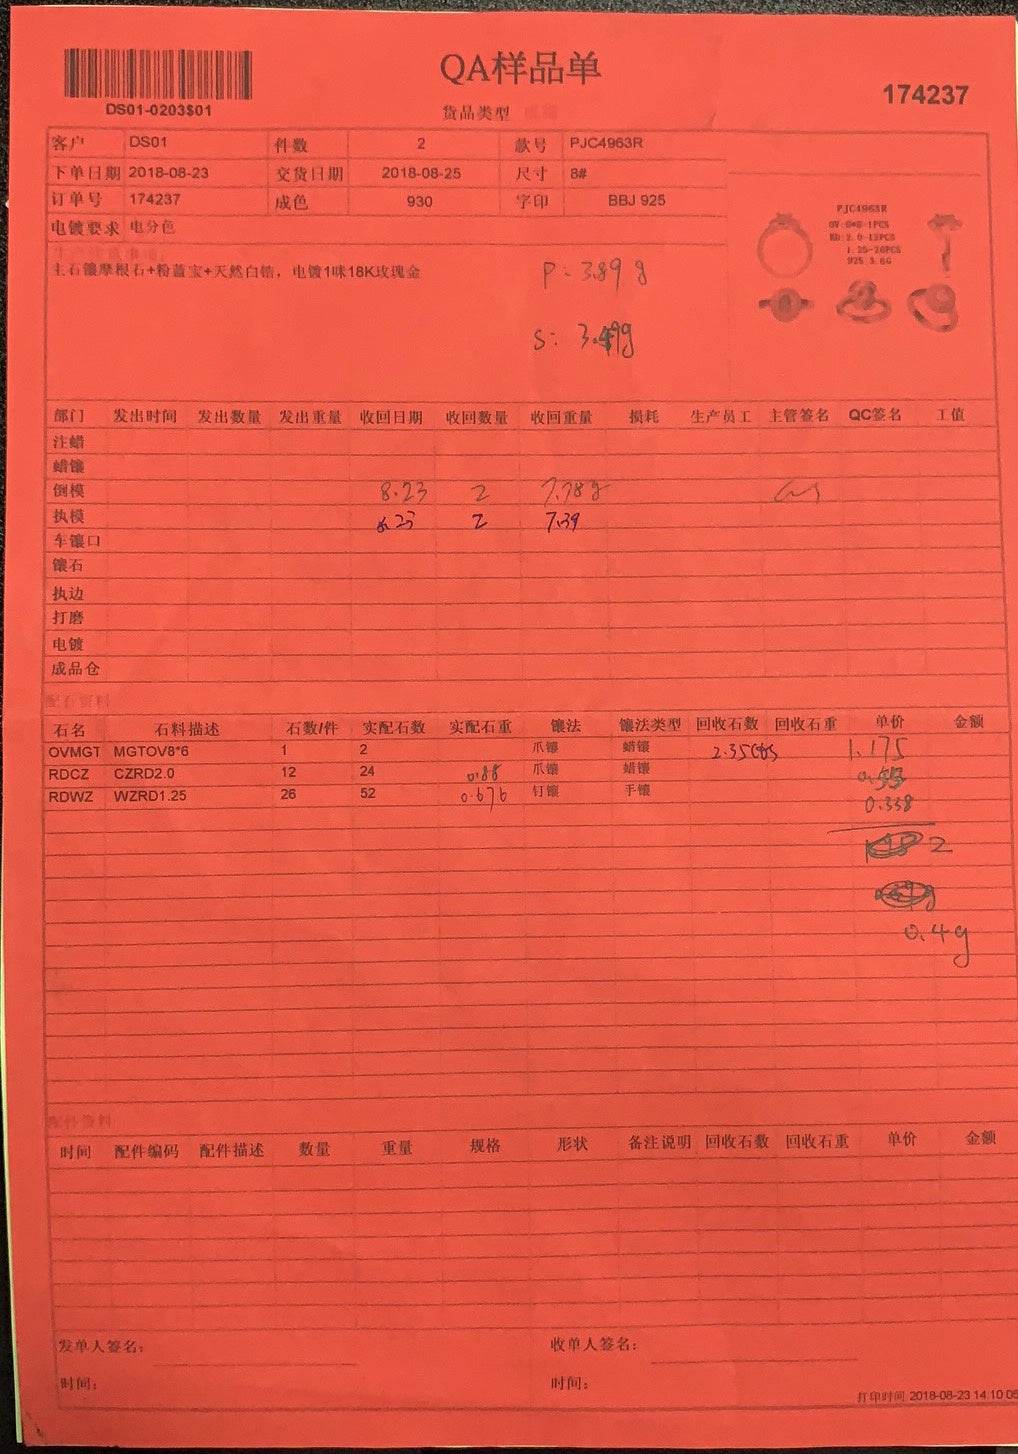 QA样品单
DS01-0203$01
货品类型
174237
客户 DS01 件数 2 款号 PJC4963R
下单日期 2018-08-23 交货日期 2018-08-25 尺寸 8#
订单号 174237 成色 930 字印 BBJ 925
电镀要求 电分色
主石镶摩根石+粉蓝宝+天然白锆，电镀1味18K玫瑰金
P: 3.89 g
S: 3.49g
PJC4963R
OV:8*6-1PCS
RD:2.0-12PCS
1.25-26PCS
925 3.6G
部门 发出时间 发出数量 发出重量 收回日期 收回数量 收回重量 损耗 生产员工 主管签名 QC签名 工值
注蜡
蜡镶
倒模 8.23 2 7.78g
执模 8.23 2 7.39
车镶口
镶石
执边
打磨
电镀
成品仓
配石资料
石名 石料描述 石数/件 实配石数 实配石重 镶法 镶法类型 回收石数 回收石重 单价 金额
OVMGT MGTOV8*6 1 2 爪镶 蜡镶 2.35cts 1.175
RDCZ CZRD2.0 12 24 0.88 爪镶 蜡镶
RDWZ WZRD1.25 26 52 0.676 钉镶 手镶 0.338
2
0.4g
配件资料
时间 配件编码 配件描述 数量 重量 规格 形状 备注说明 回收石数 回收石重 单价 金额
发单人签名： 收单人签名：
时间： 时间：
打印时间 2018-08-23 14:10:05